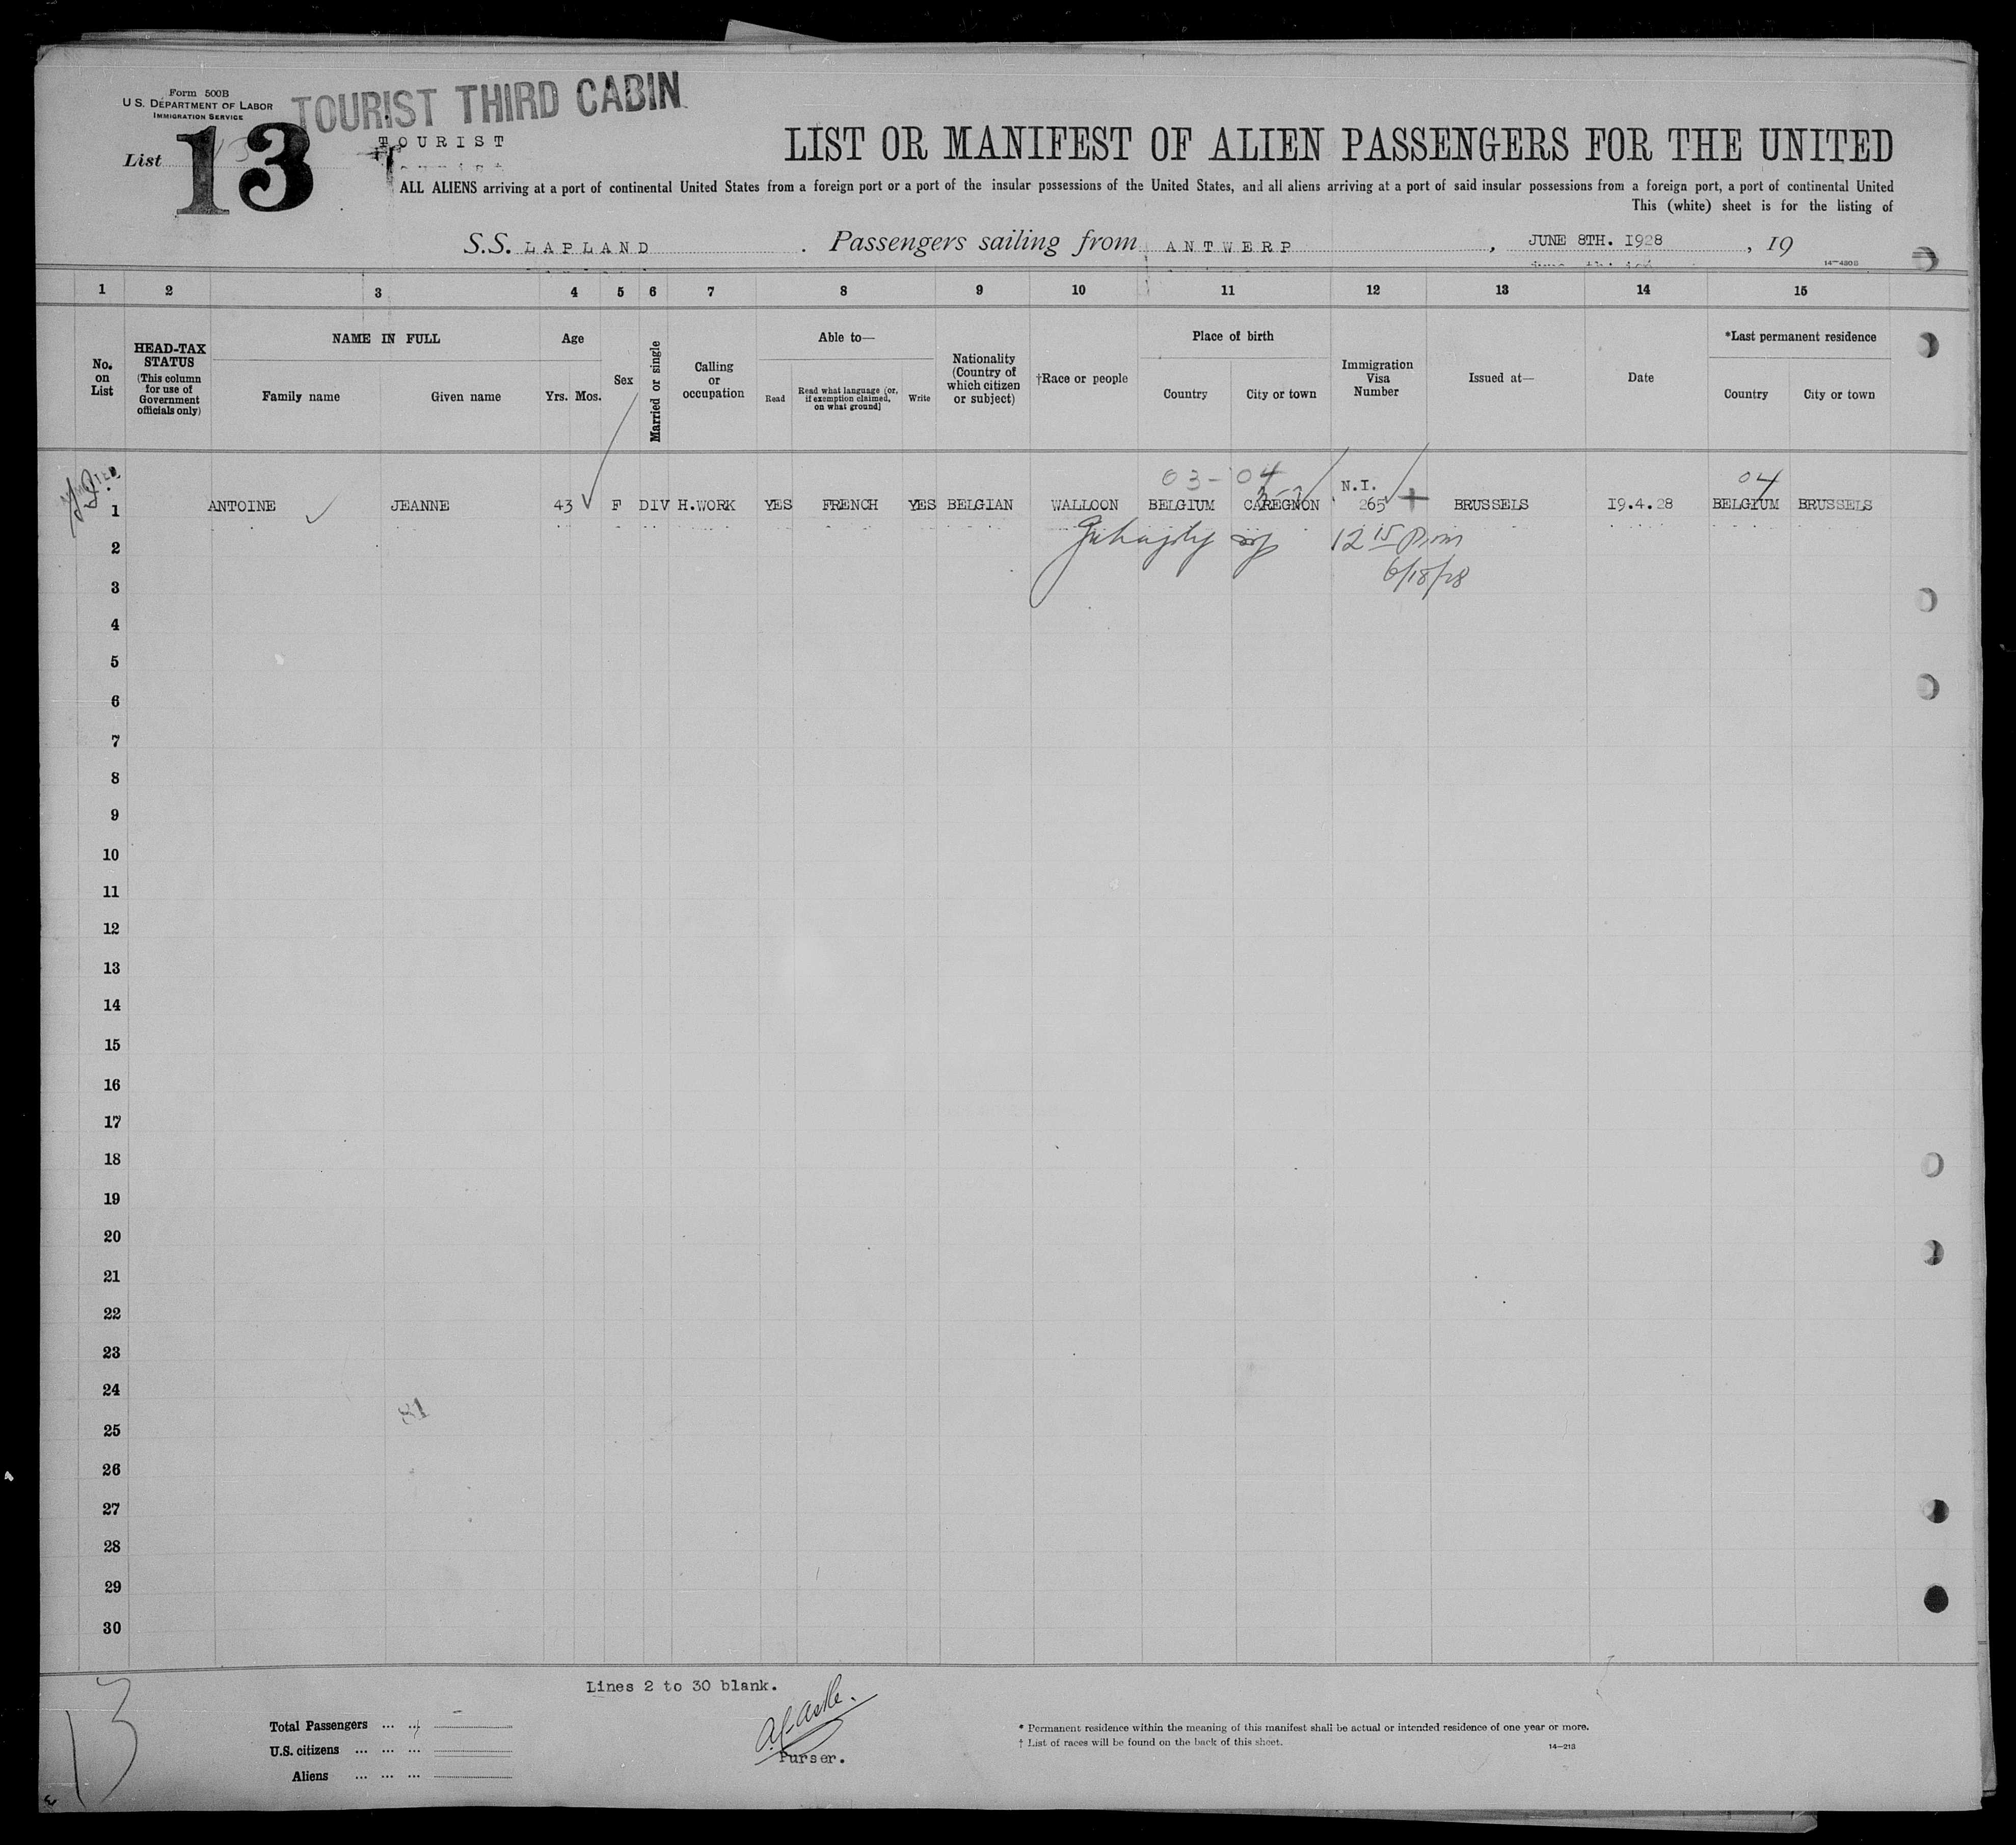 Form 500B
U.S. DEPARTMENT OF LABOR
IMMIGRATION SERVICE
TOURIST THIRD CABIN
List 13
TOURIST
LIST OR MANIFEST OF ALIEN PASSENGERS FOR THE UNITED
ALL ALIENS arriving at a port of continental United States from a foreign port or a port of the insular possessions of the United States, and all aliens arriving at a port of said insular possessions from a foreign port, a port of continental United
This (white) sheet is for the listing of
S.S. LAPLAND. Passengers sailing from ANTWERP, JUNE 8TH. 1928, 19
1 2 3 4 5 6 7 8 9 10 11 12 13 14 15
No. on List
HEAD-TAX STATUS (This column for use of Government officials only)
NAME IN FULL
Family name Given name
Age
Yrs. Mos.
Sex
Married or single
Calling or occupation
Able to—
Read Read what language (or, if exemption claimed, on what ground) Write
Nationality (Country of which citizen or subject)
†Race or people
Place of birth
Country City or town
Immigration Visa Number
Issued at—
Date
*Last permanent residence
Country City or town
03-04 N.I. 04
1 ANTOINE JEANNE 43 F DIV H.WORK YES FRENCH YES BELGIAN WALLOON BELGIUM CAREGNON 265 BRUSSELS 19.4.28 BELGIUM BRUSSELS
2 12 15 P.m
3 6/18/28
4
5
6
7
8
9
10
11
12
13
14
15
16
17
18
19
20
21
22
23
24
25
26
27
28
29
30
Lines 2 to 30 blank.
Purser.
13
Total Passengers
U.S. citizens
Aliens
* Permanent residence within the meaning of this manifest shall be actual or intended residence of one year or more.
† List of races will be found on the back of this sheet.
14—213